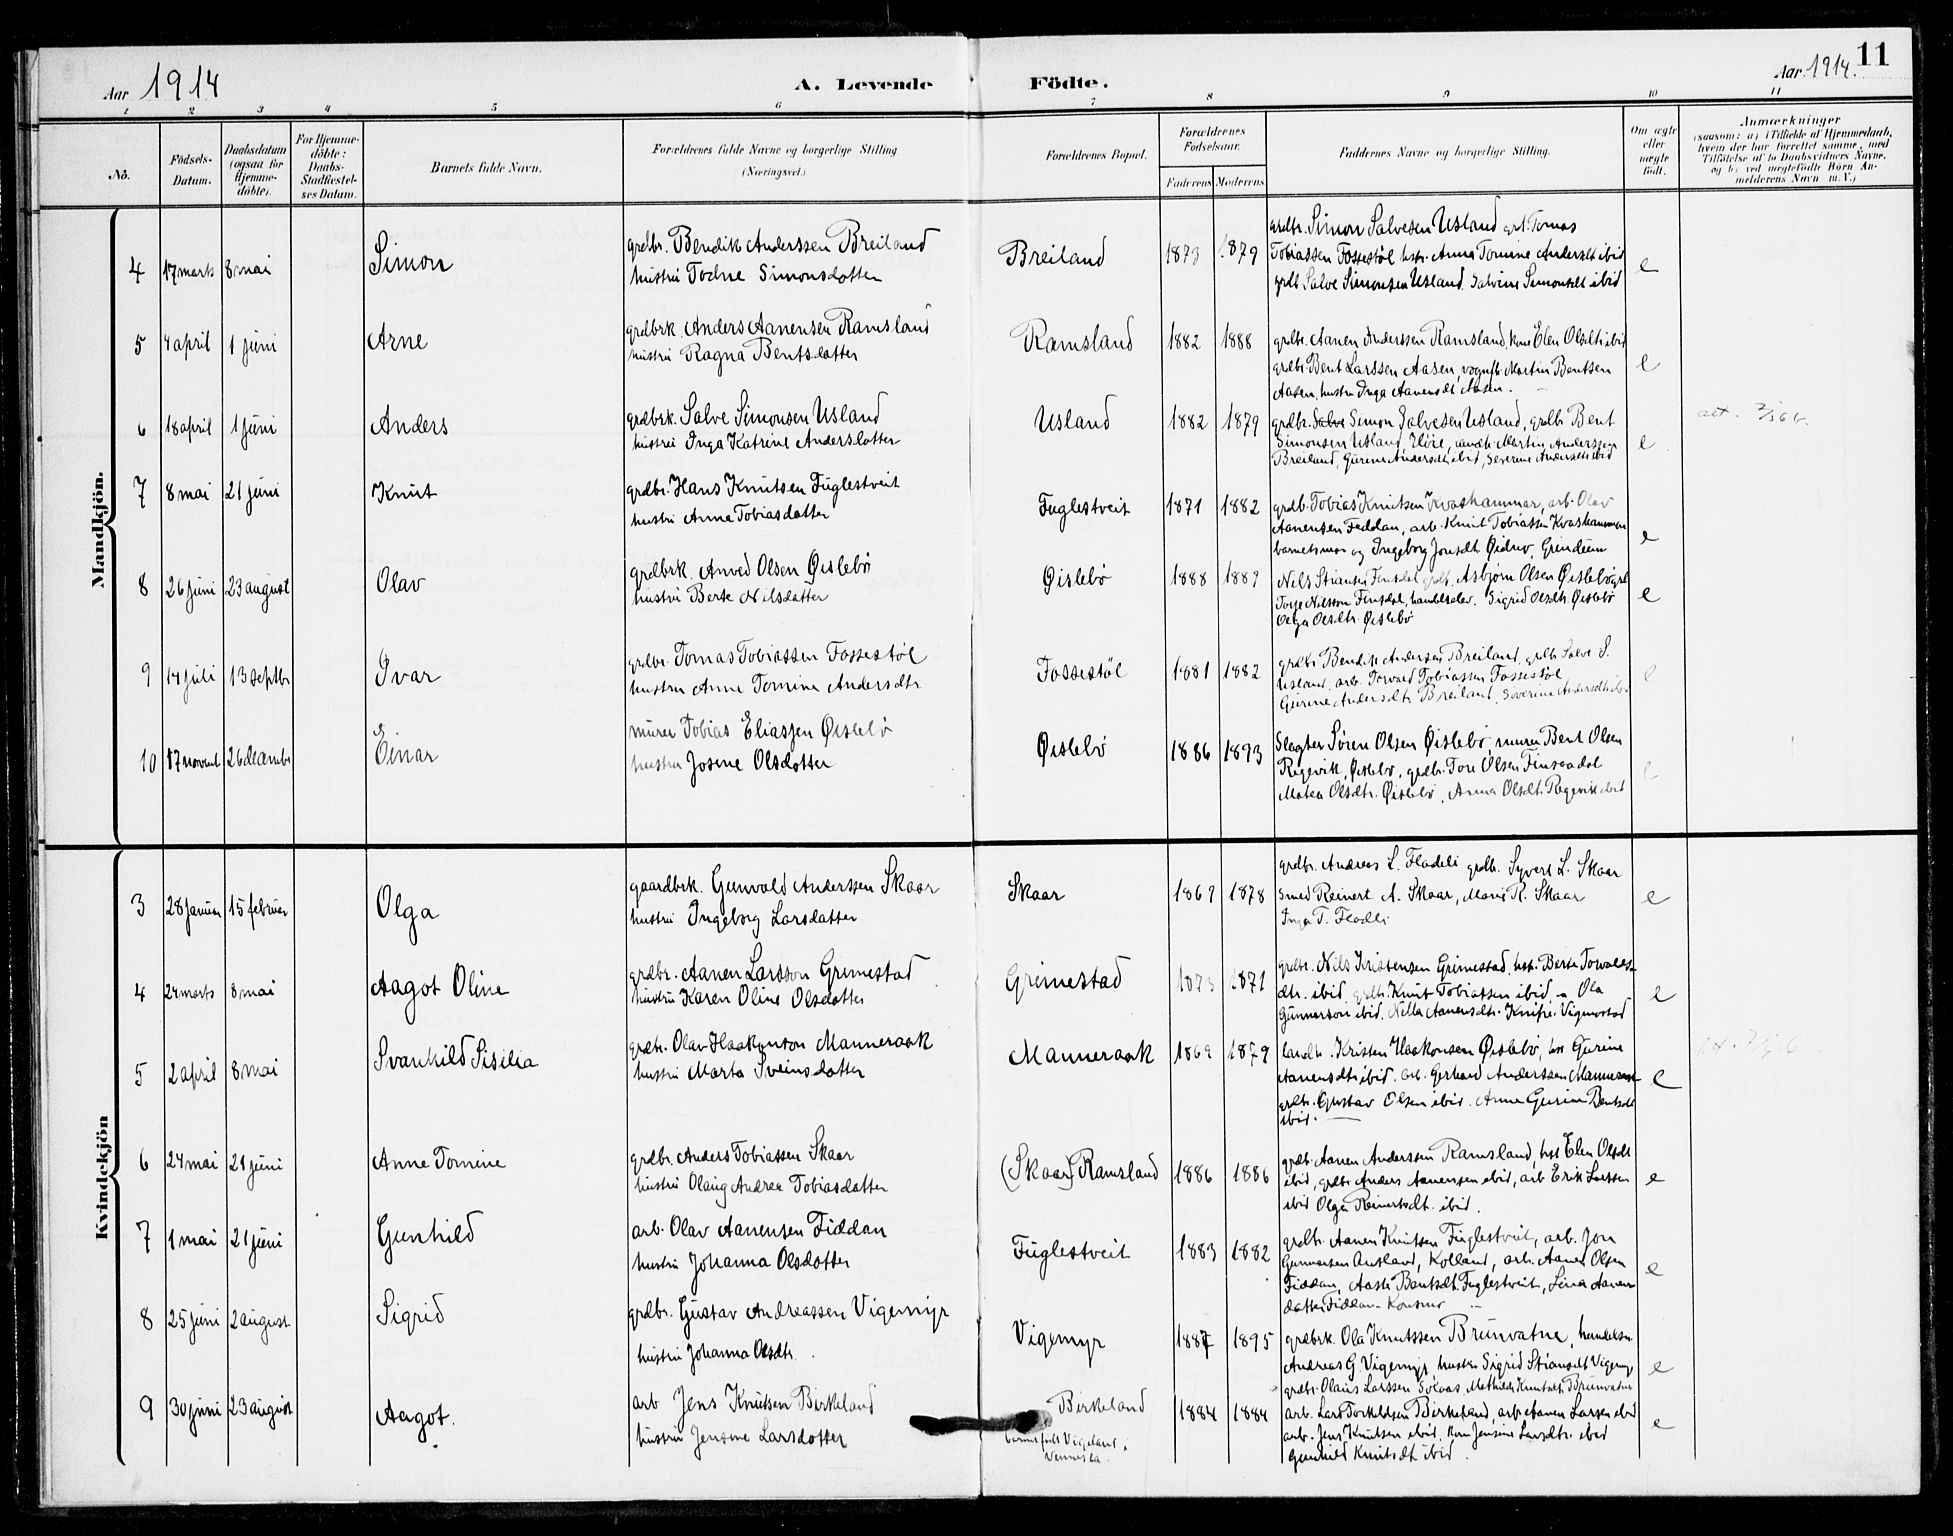 Aar 1914
A. Levende Födte.
Aar 1914. 11
1 2 3 4 5 6 7 8 9 10 11
No.
Födsels-Datum.
Daabsdatum (ogsaa for Hjemme-döbte).
For Hjemme-döbte: Daabs-Stadfæstel-ses Datum.
Barnets fulde Navn.
Forældrenes fulde Navne og borgerlige Stilling (Næringsvei.)
Forældrenes Bopæl.
Forældrenes Födselsaar.
Faderens Moderens
Faddernes Navne og borgerlige Stilling.
Om ægte eller uægte födt.
Anmærkninger
(saasom: a) i Tilfælde af Hjemmedaab, hvem der har forrettet samme, med Tilföielse af to Daabsvidners Navne, og b) ved uægtefödte Börn An-melderens Navn m. V.)
Mandkjön.
4 17 marts 8 mai Simon
grdbr. Bendik Anderssen Breiland
hustru Todne Simonsdatter
Breiland 1873 1879
grdbr. Simon Salvesen Usland, Tomas
Tobiassen Fossestøl, Anna Tomine Andersdt ibid
grdb Salve Simonsen Usland. Salvine Simonsdt ibid
e
5 4 april 1 juni Arne
grdbrk. Anders Aanensen Ramsland
hustru Ragna Bentsdatter
Ramsland 1882 1888
grdbr. Aanen Anderssen Ramsland, kone Elen Olsdt ibid
grdbr. Bent Larssen Aasen, Martin Bentsen
Aasen, hustru Inga Aanensdt Aasen.
e
6 18 april 1 juni Anders
grdbrk. Salve Simonsen Usland
hustru Inga Katrine Andersdatter
Usland 1882 1879
grdbr. Salve Simon Salvesen Usland, grdbr Bent
Simonsen Usland, Martin Anderssen
Breiland, Gurine Andersdt ibid, Severine Andersdt ibid
e
7 8 mai 21 juni Knut
grdbr. Hans Knutsen Fuglestveit
hustru Anna Tobiasdatter
Fuglestveit 1871 1882
grdb. Tobias Knutsen Kvashammar, arb. Olav
Aanensen Fiddan, arb. Knut Tobiassen Kvashammar
barnets mor og Ingeborg Jonsdt. Grindum
e
8 26 juni 23 august Olav
grdbrk. Anved Olsen Øislebø
hustru Berte Nilsdatter
Øislebø 1888 1889
Nils Stiansen Finsdal, Asbjørn Olsen Øislebø
Torje Nilsson Finsdal, Sigrid Olsdtr. Øislebø
Olga Olsdtr. Øislebø
e
9 14 juli 13 septbr Ivar
grdbr. Tomas Tobiassen Fossestøl
hustru Anne Tomine Andersdtr.
Fossestøl 1881 1882
grdbr Bendik Andersen Breiland, grdb Salve S.
Usland, arb. Torvald Tobiassen Fossestøl
Gurine Andersdt. Breiland, Severine Andersdt ibid
e
10 17 novemb 26 decembr Einar
murer Tobias Eliassen Øislebø
hustru Josine Olsdatter
Øislebø 1886 1893
Slagter Søren Olsen Øislebø, murer Bent Olsen
Røgevik, Øislebø, grdbr. Tore Olsen Finsaadal
Matea Olsdtr. Øislebø, Anna Olsdt. Røgevik ibid
e
Kvindekjön
3 28 januar 15 februar Olga
gaardbrk. Gunvald Anderssen Skaar
hustru Ingeborg Larsdatter
Skaar 1869 1878
grdbr. Andreas L. Fladeli grdbr. Syvert L. Skaar
smed Reinert A. Skaar, Marie R. Skaar
Inga T. Fladeli
e
4 24 marts 8 mai Aagot Oline
grdbr. Aanen Larsson Grimestad
hustru Karen Oline Olsdatter
Grimestad 1873 1871
grdbr. Nils Kristensen Grimestad, Berte Torvalds-
dtr. ibid, grdbr. Knut Tobiassen ibid, Ola
Gunnarson ibid. Nilla Aanensdtr.
e
5 2 april 8 mai Svanhild Sisilia
grdbr. Olav Haakonson Manneraak
hustru Marta Sveinsdatter
Manneraak 1869 1879
landh. Kristen Haakonsen Øislebø, Gurine
Aanensdt ibid. arb. Gerhard Anderssen Manneraak
grdbr. Gustav Olsen ibid. Anne Gurine Bentsdt
ibid.
e
6 24 mai 21 juni Anne Tomine
grdbr. Anders Tobiassen Skaar
hustru Olaug Andrea Tobiasdatter
(Skaar) Ramsland 1886 1886
grdb. Aanen Anderssen Ramsland, Elen Olsdt
ibid, grdbr Anders Aanensen ibid, arb Erik Larssen
ibid Olga Reinertsdt. ibid.
e
7 1 mai 21 juni Gunhild
arb. Olav Aanensen Fiddan
hustru Johanna Olsdatter
Fuglestveit 1883 1882
grdbr. Aanen Knutsen Fuglestveit, arb. Jon
Gunnarsen, arb. Aanen Olsen
Fiddan, Aaste Bentsdt. Fuglestveit, Lina Aanens
datter Fiddan
e
8 25 juni 2 august Sigrid
grdbr. Gustav Andreassen Vigemyr
hustru Johanna Olsdtr.
Vigemyr 1887 1895
grdbrk. Ola Knutssen Brunvatne,
Andreas G. Vigemyr, hustru Sigrid Stiansdt Vigemyr
grdbr. Olaus Larssen, Mathilde Knutsdt. Brunvatne
e
9 30 juni 23 august Aagot.
arb Jens Knutsen Birkeland
hustru Jensine Larsdatter
Birkeland
barnet født Vigeland i
Vennesla.
1884 1884
arb. Lars Torkeldsen Birkeland, arb. Aanen Larsen ibid
arb. Jens Knutsen ibid, Jensine Larsdtr. ibid
Gunhild Knutsdt ibid.
e